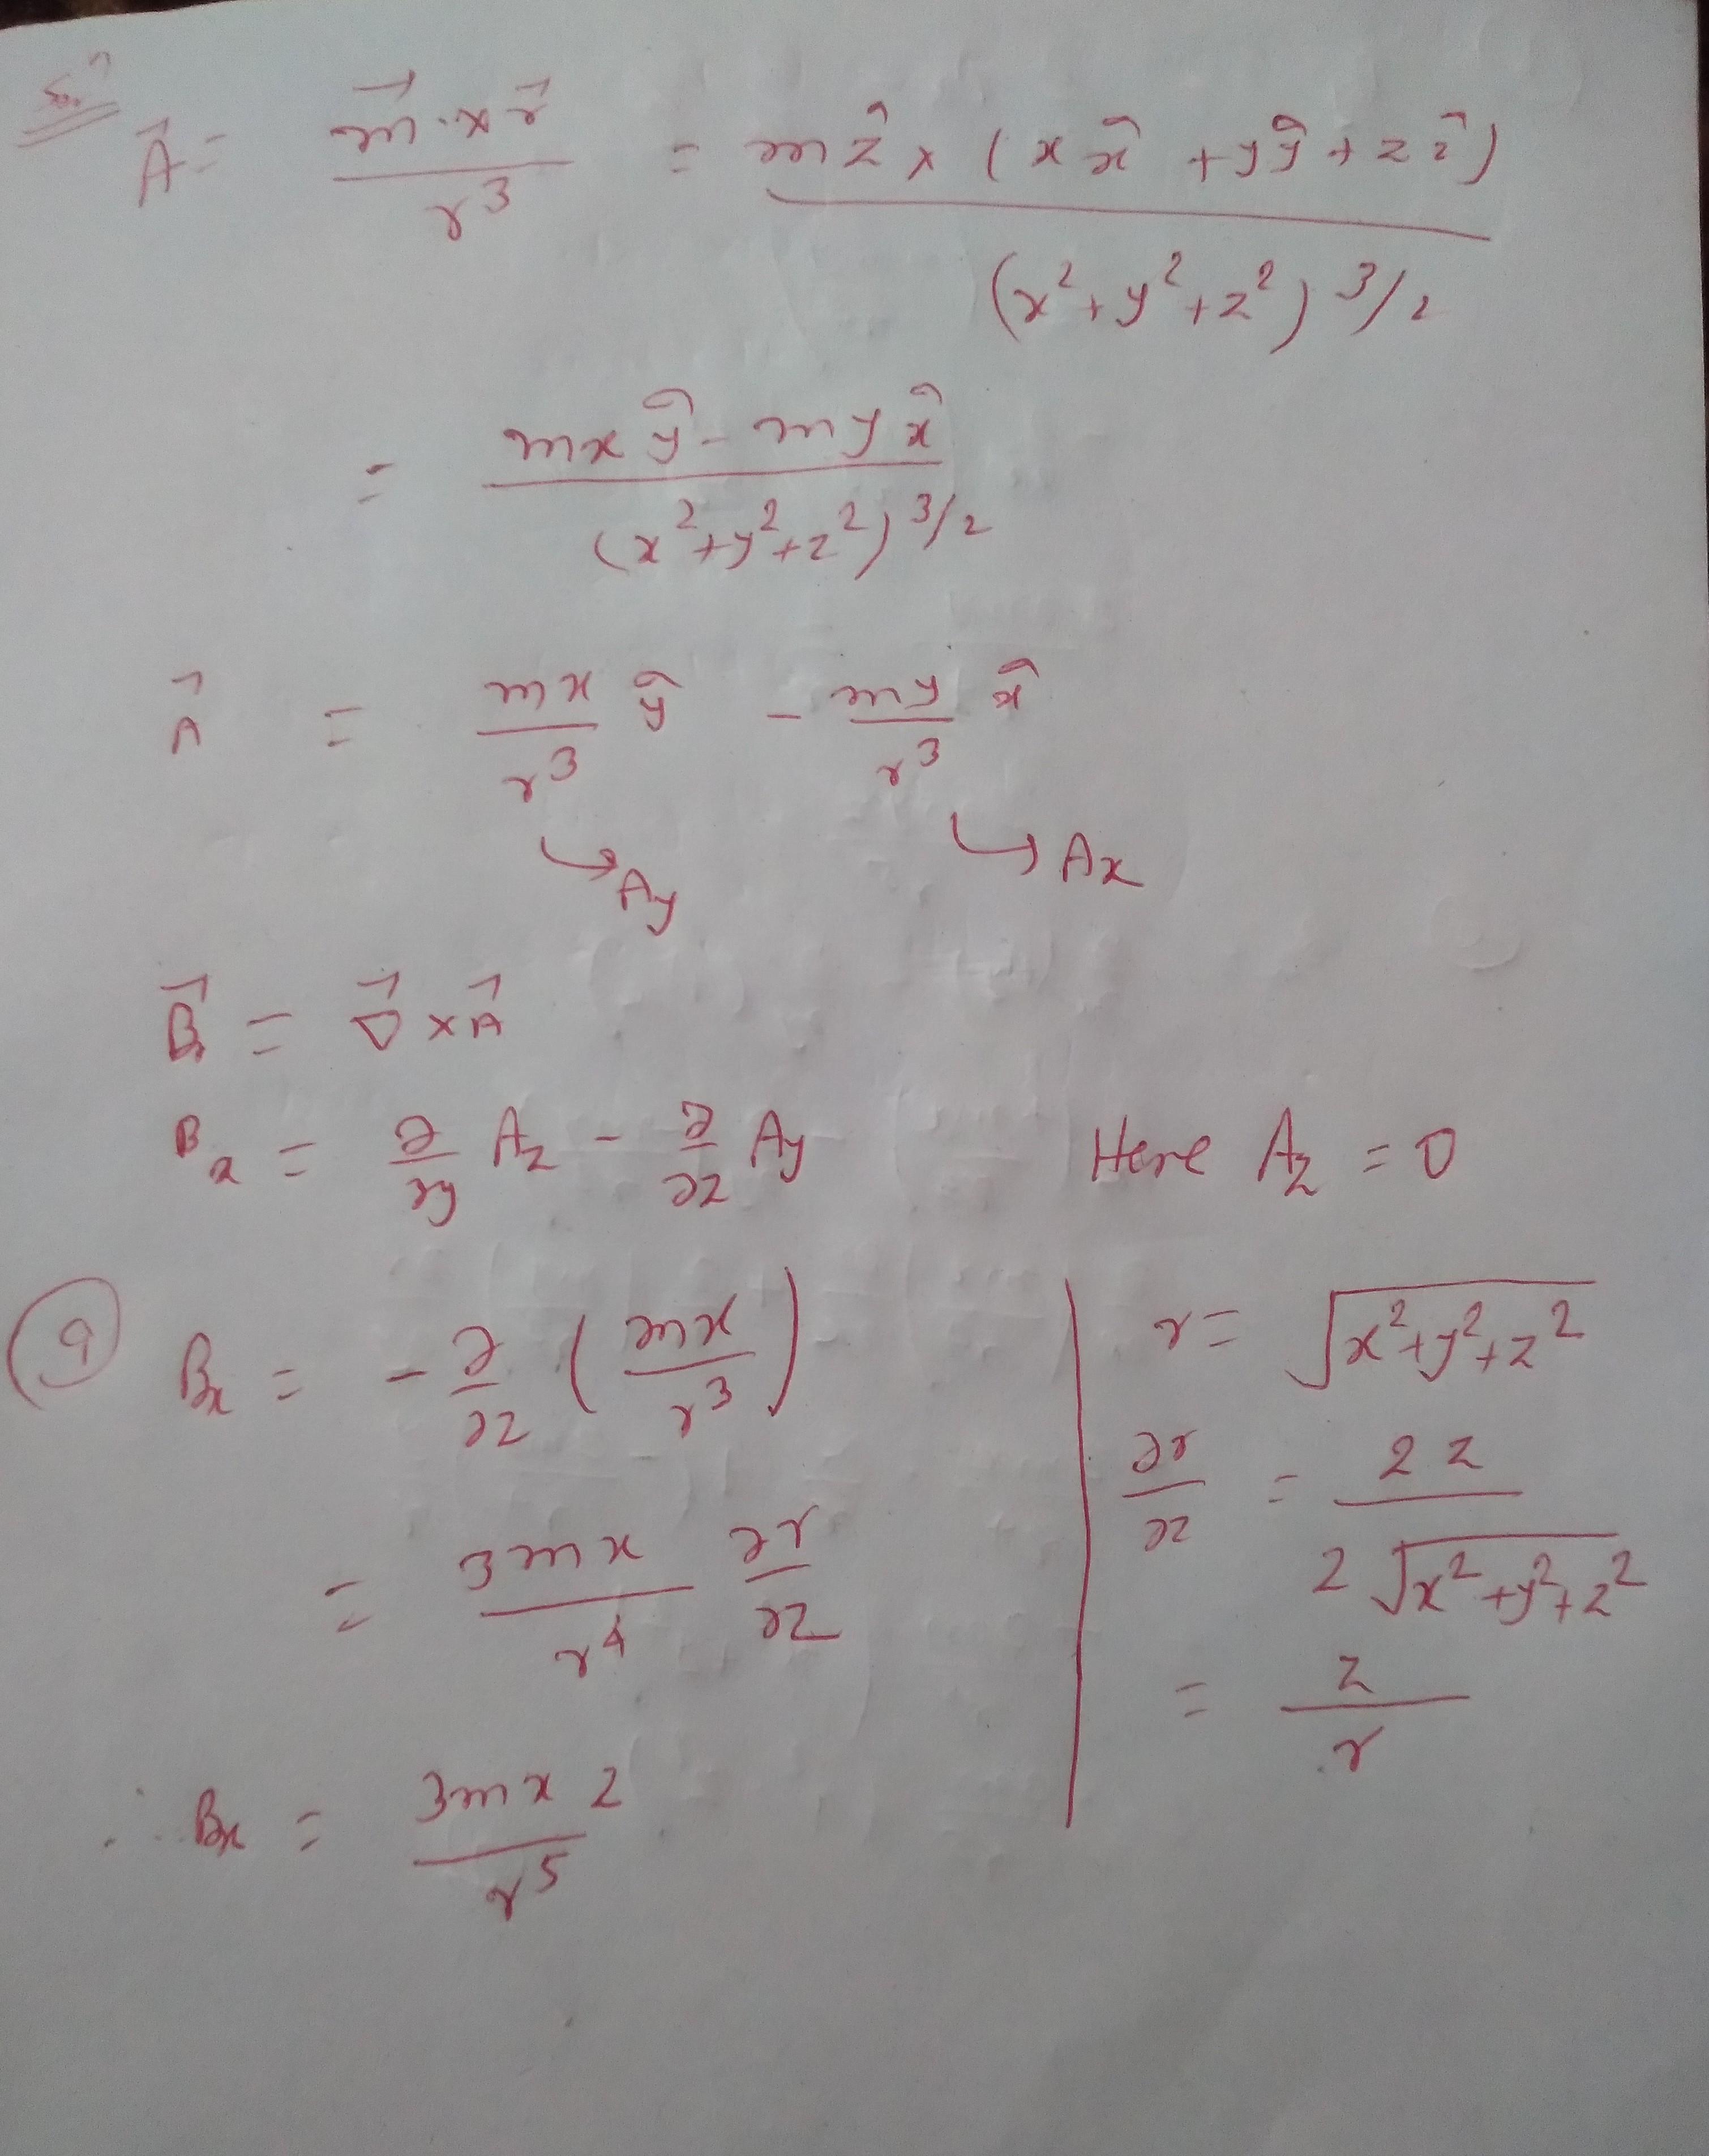 Soln
A⃗ = m⃗ × r⃗ / r³ = mẑ × (x x̂ + y ŷ + z ẑ) / (x² + y² + z²)^3/2
= mx ŷ - my x̂ / (x² + y² + z²)^3/2
A⃗ = mx/r³ ŷ - my/r³ x̂
↳ Ay ↳ Ax
B⃗ = ∇⃗ × A⃗
Bx = ∂/∂y Az - ∂/∂z Ay Here Az = 0
Bx = - ∂/∂z ( mx/r³ )
= 3mx/r⁴ ∂r/∂z
∴ Bx = 3mxz/r⁵
r = √(x² + y² + z²)
∂r/∂z = 2z / 2√(x² + y² + z²)
= z/r